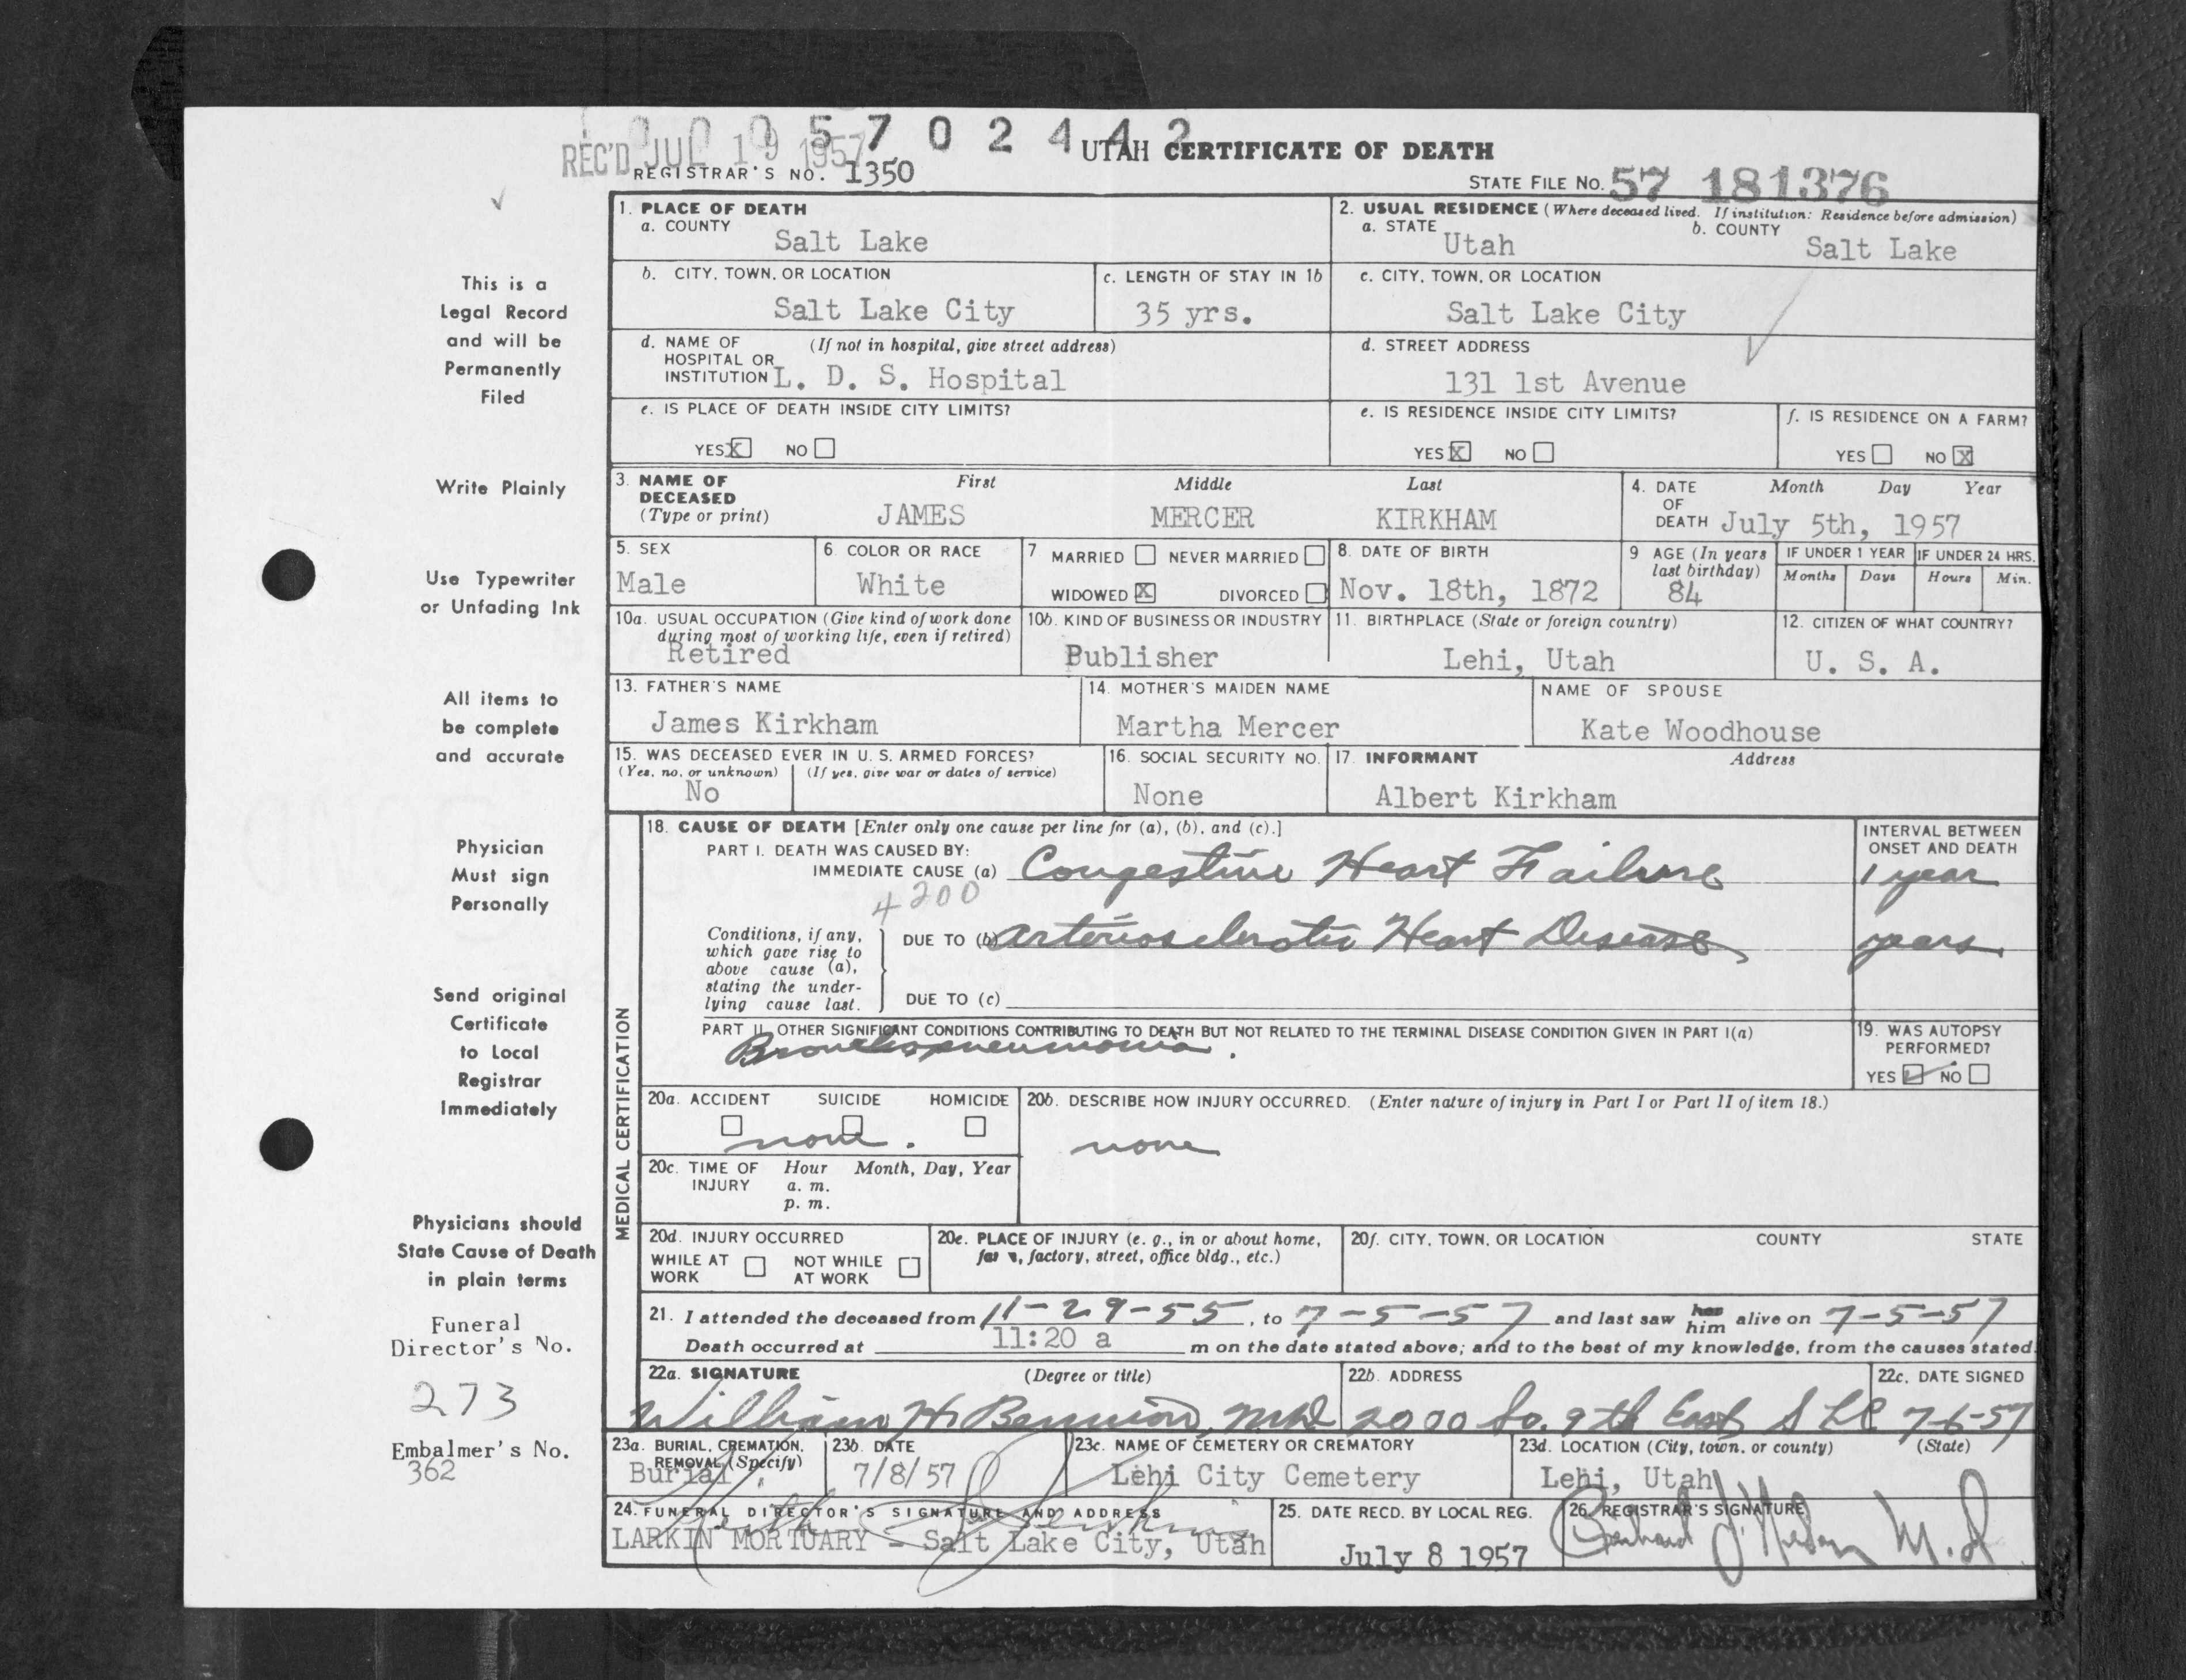 0 0 0 5 7 0 2 4 4 2
REC'D JUL 19 1957
UTAH CERTIFICATE OF DEATH
REGISTRAR'S NO. 1350
STATE FILE NO. 57 181376
This is a
Legal Record
and will be
Permanently
Filed
Write Plainly
Use Typewriter
or Unfading Ink
All items to
be complete
and accurate
Physician
Must sign
Personally
Send original
Certificate
to Local
Registrar
Immediately
Physicians should
State Cause of Death
in plain terms
Funeral
Director's No.
273
Embalmer's No.
362
1. PLACE OF DEATH
a. COUNTY
Salt Lake
2. USUAL RESIDENCE (Where deceased lived. If institution: Residence before admission)
a. STATE
Utah
b. COUNTY
Salt Lake
b. CITY, TOWN, OR LOCATION
Salt Lake City
c. LENGTH OF STAY IN 1b
35 yrs.
c. CITY, TOWN, OR LOCATION
Salt Lake City
d. NAME OF (If not in hospital, give street address)
HOSPITAL OR
INSTITUTION L. D. S. Hospital
d. STREET ADDRESS
131 1st Avenue
e. IS PLACE OF DEATH INSIDE CITY LIMITS?
YES X NO
e. IS RESIDENCE INSIDE CITY LIMITS?
YES X NO
f. IS RESIDENCE ON A FARM?
YES NO X
3. NAME OF DECEASED
(Type or print)
First Middle Last
JAMES MERCER KIRKHAM
4. DATE OF DEATH
Month Day Year
July 5th, 1957
5. SEX
Male
6. COLOR OR RACE
White
7 MARRIED NEVER MARRIED
WIDOWED X DIVORCED
8. DATE OF BIRTH
Nov. 18th, 1872
9 AGE (In years
last birthday)
84
IF UNDER 1 YEAR
Months Days
IF UNDER 24 HRS.
Hours Min.
10a. USUAL OCCUPATION (Give kind of work done
during most of working life, even if retired)
Retired
10b. KIND OF BUSINESS OR INDUSTRY
Publisher
11. BIRTHPLACE (State or foreign country)
Lehi, Utah
12. CITIZEN OF WHAT COUNTRY?
U. S. A.
13. FATHER'S NAME
James Kirkham
14. MOTHER'S MAIDEN NAME
Martha Mercer
NAME OF SPOUSE
Kate Woodhouse
15. WAS DECEASED EVER IN U. S. ARMED FORCES?
(Yes, no, or unknown) (If yes, give war or dates of service)
No
16. SOCIAL SECURITY NO.
None
17. INFORMANT Address
Albert Kirkham
MEDICAL CERTIFICATION
18. CAUSE OF DEATH [Enter only one cause per line for (a), (b), and (c).]
PART I. DEATH WAS CAUSED BY:
IMMEDIATE CAUSE (a) Congestive Heart Failure
INTERVAL BETWEEN
ONSET AND DEATH
1 year
4200
Conditions, if any,
which gave rise to
above cause (a),
stating the under-
lying cause last.
DUE TO (b) Arteriosclerotic Heart Disease
years
DUE TO (c)
PART II. OTHER SIGNIFICANT CONDITIONS CONTRIBUTING TO DEATH BUT NOT RELATED TO THE TERMINAL DISEASE CONDITION GIVEN IN PART I(a)
Bronchopneumonia.
19. WAS AUTOPSY
PERFORMED?
YES ✓ NO
20a. ACCIDENT SUICIDE HOMICIDE
none.
20b. DESCRIBE HOW INJURY OCCURRED. (Enter nature of injury in Part I or Part II of item 18.)
none
20c. TIME OF INJURY
Hour Month, Day, Year
a. m.
p. m.
20d. INJURY OCCURRED
WHILE AT WORK NOT WHILE AT WORK
20e. PLACE OF INJURY (e. g., in or about home,
farm, factory, street, office bldg., etc.)
20f. CITY, TOWN, OR LOCATION COUNTY STATE
21. I attended the deceased from 11-29-55, to 7-5-57 and last saw her him alive on 7-5-57
Death occurred at 11:20 a m on the date stated above; and to the best of my knowledge, from the causes stated.
22a. SIGNATURE (Degree or title)
William H. Bennion, M.D.
22b. ADDRESS
2000 So. 9th East SLC
22c. DATE SIGNED
7-6-57
23a. BURIAL, CREMATION,
REMOVAL (Specify)
Burial
23b. DATE
7/8/57
23c. NAME OF CEMETERY OR CREMATORY
Lehi City Cemetery
23d. LOCATION (City, town, or county) (State)
Lehi, Utah
24. FUNERAL DIRECTOR'S SIGNATURE AND ADDRESS
LARKIN MORTUARY - Salt Lake City, Utah
25. DATE RECD. BY LOCAL REG.
July 8 1957
26. REGISTRAR'S SIGNATURE
M.D.